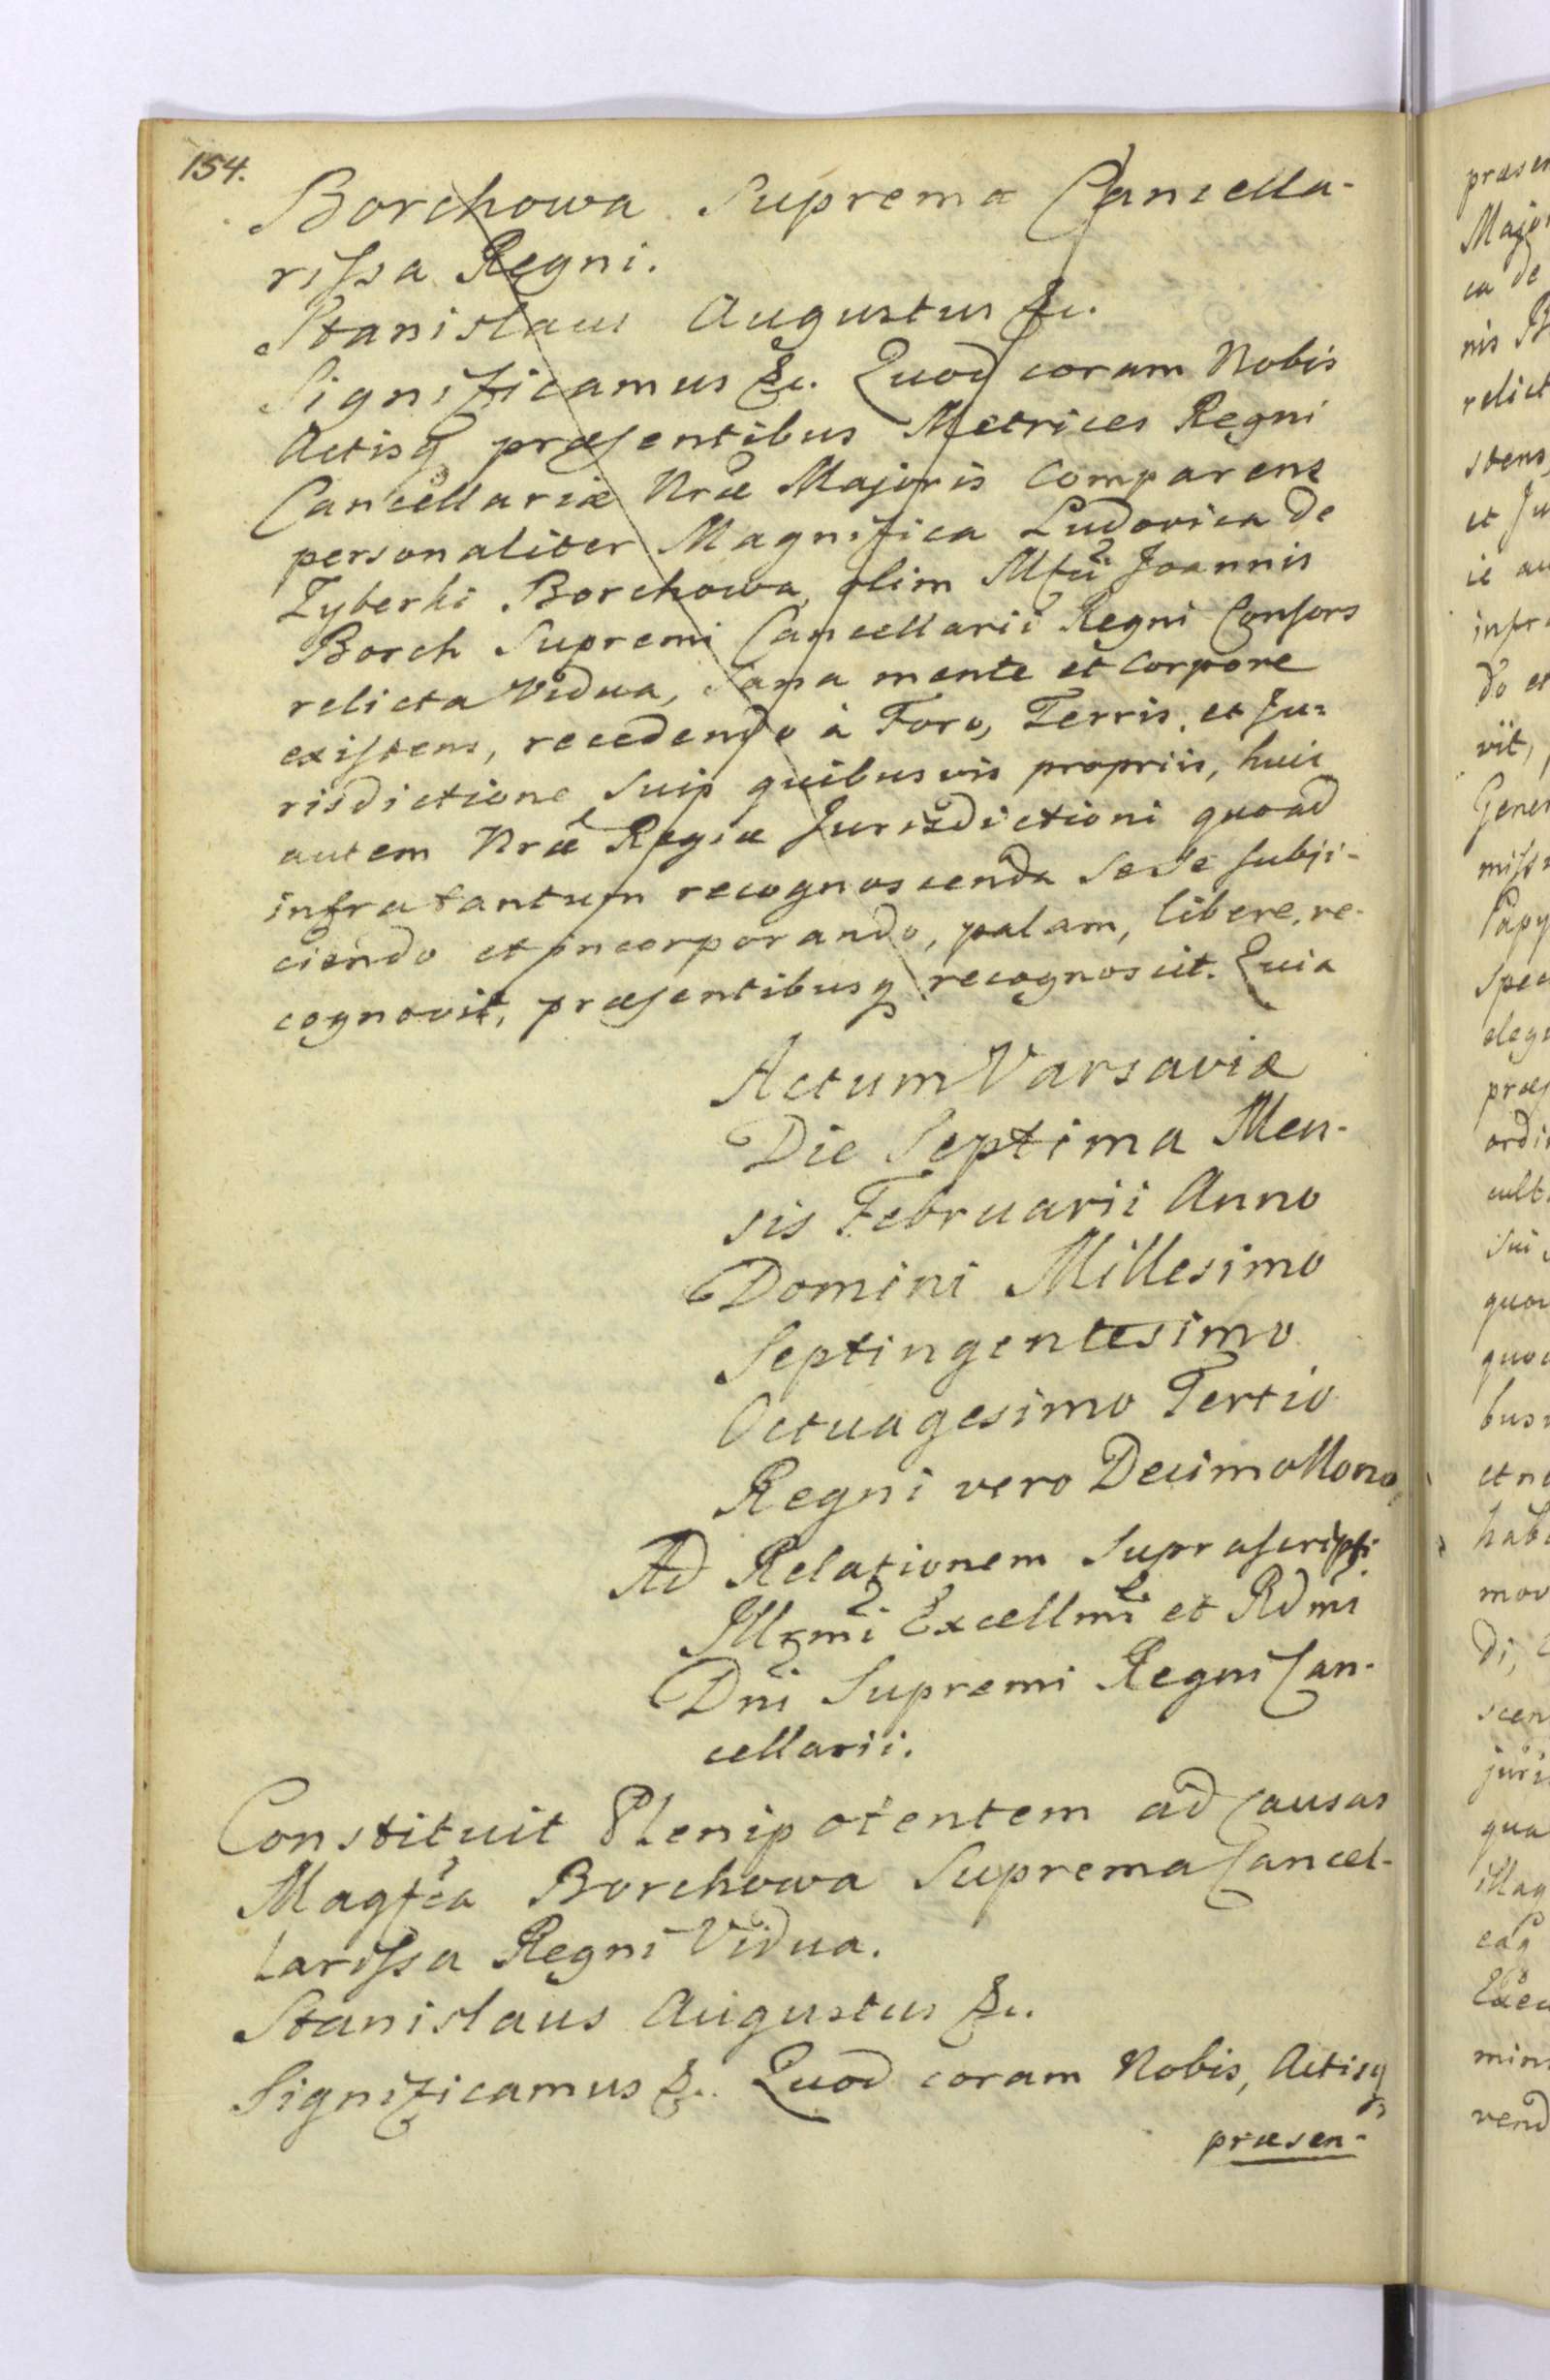 154.
Borchowa Suprema Cancella-
rissa Regni.
Stanislaus Augustus &c.
Significamus &c. Quod coram Nobis
Actisq præsentibus Metrices Regni
Cancellariæ Nræ Majoris Comparens
personaliter Magnifica Ludovica de
Zyberki Borchowa, olim Mfci Joannis
Borch Supremi Cancellarii Regni Consors
relicta Vidua, Sana mente et Corpore
existens, recedendo à Foro, Terris, et Ju=
risdictione suis quibusvis propriis, huic
autem Nræ Regiæ Jurisdictioni quoad
infra tantum recognoscenda Sese subji-
ciendo et incorporando, palam, libere, re-
cognovit, præsentibusq recognoscit. Quia
Actum Varsaviæ
Die Septima Men-
sis Februarii Anno
Domini Millesimo
Septingentesimo
Octuagesimo Tertio
Regni vero Decimo Nono,
Ad Relationem Suprascripti
Illrmi Excellmi et Rdmi
Dni Supremi Regni Can-
cellarii.
Constituit Plenipotentem ad Causas
Magfca Borchowa Suprema Cancel-
larissa Regni Vidua.
Stanislaus Augustus &c.
Significamus &c. Quod coram Nobis, Actisq
præsen-